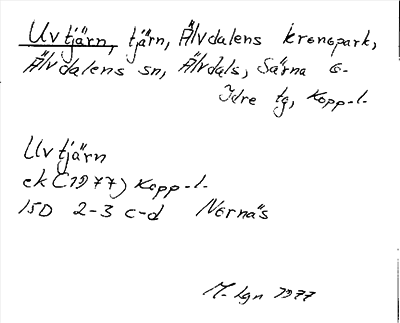 Uvtjärn, tjärn, Älvdalens kronopark,
Älvdalens sn, Älvdals, Särna o.
Idre tg, Kopp.l.
Uvtjärn
ek (1977) Kopp.l.
15D 2-3 c-d Nornäs
M-lgn 1977